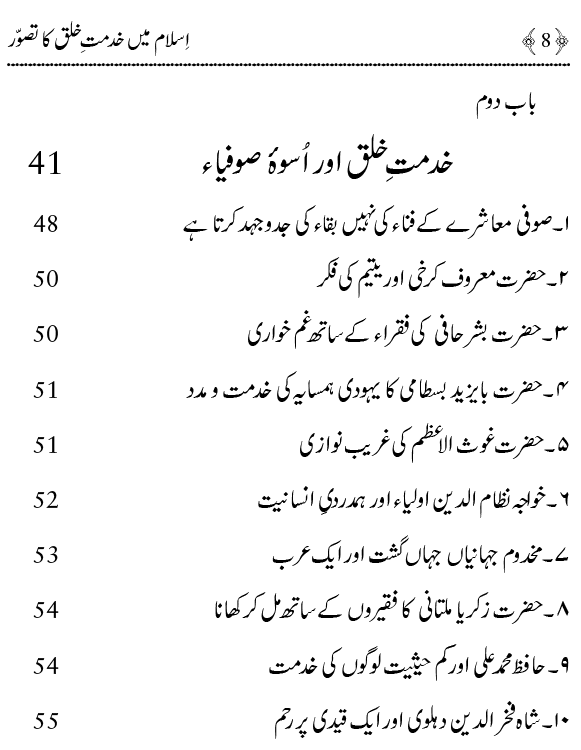 ﴿8﴾ اِسلام میں خدمتِ خلق کا تصوّر
باب دوم
خدمتِ خلق اور اُسوۂ صوفیاء 41
۱۔صوفی معاشرے کے فناء کی نہیں بقاء کی جدوجہد کرتا ہے 48
۲۔حضرت معروف کرخی اور یتیم کی فکر 50
۳۔حضرت بشر حافی کی فقراء کے ساتھ غم خواری 50
۴۔حضرت بایزید بسطامی کا یہودی ہمسایہ کی خدمت و مدد 51
۵۔حضرت غوث الاعظم کی غریب نوازی 51
۶۔خواجہ نظام الدین اولیاء اور ہمدردیِ انسانیت 52
۷۔مخدوم جہانیاں جہاں گشت اور ایک عرب 53
۸۔حضرت زکریا ملتانی کا فقیروں کے ساتھ مل کر کھانا 54
۹۔حافظ محمد علی اور کم حیثیت لوگوں کی خدمت 54
۱۰۔شاہ فخر الدین دہلوی اور ایک قیدی پر رحم 55